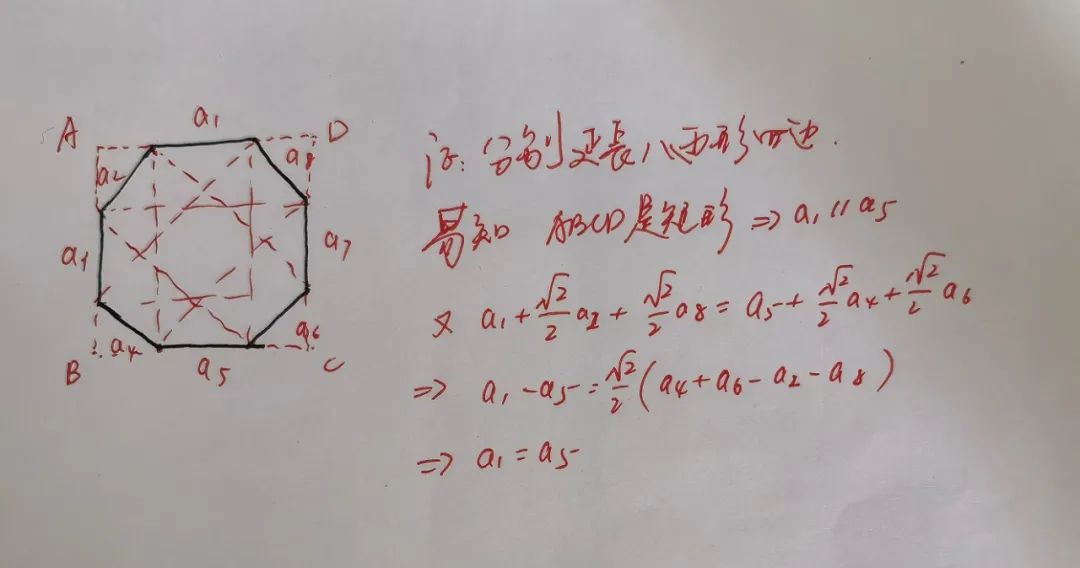 A a₁ D
a₂ a₈
a₁ a₇
a₄ a₆
B a₅ C
证:分别延长八边形四边.
易知 ABCD是矩形 ⇒ a₁ // a₅
又 a₁ + √2/2 a₂ + √2/2 a₈ = a₅ + √2/2 a₄ + √2/2 a₆
⇒ a₁ - a₅ = √2/2 (a₄ + a₆ - a₂ - a₈)
⇒ a₁ = a₅